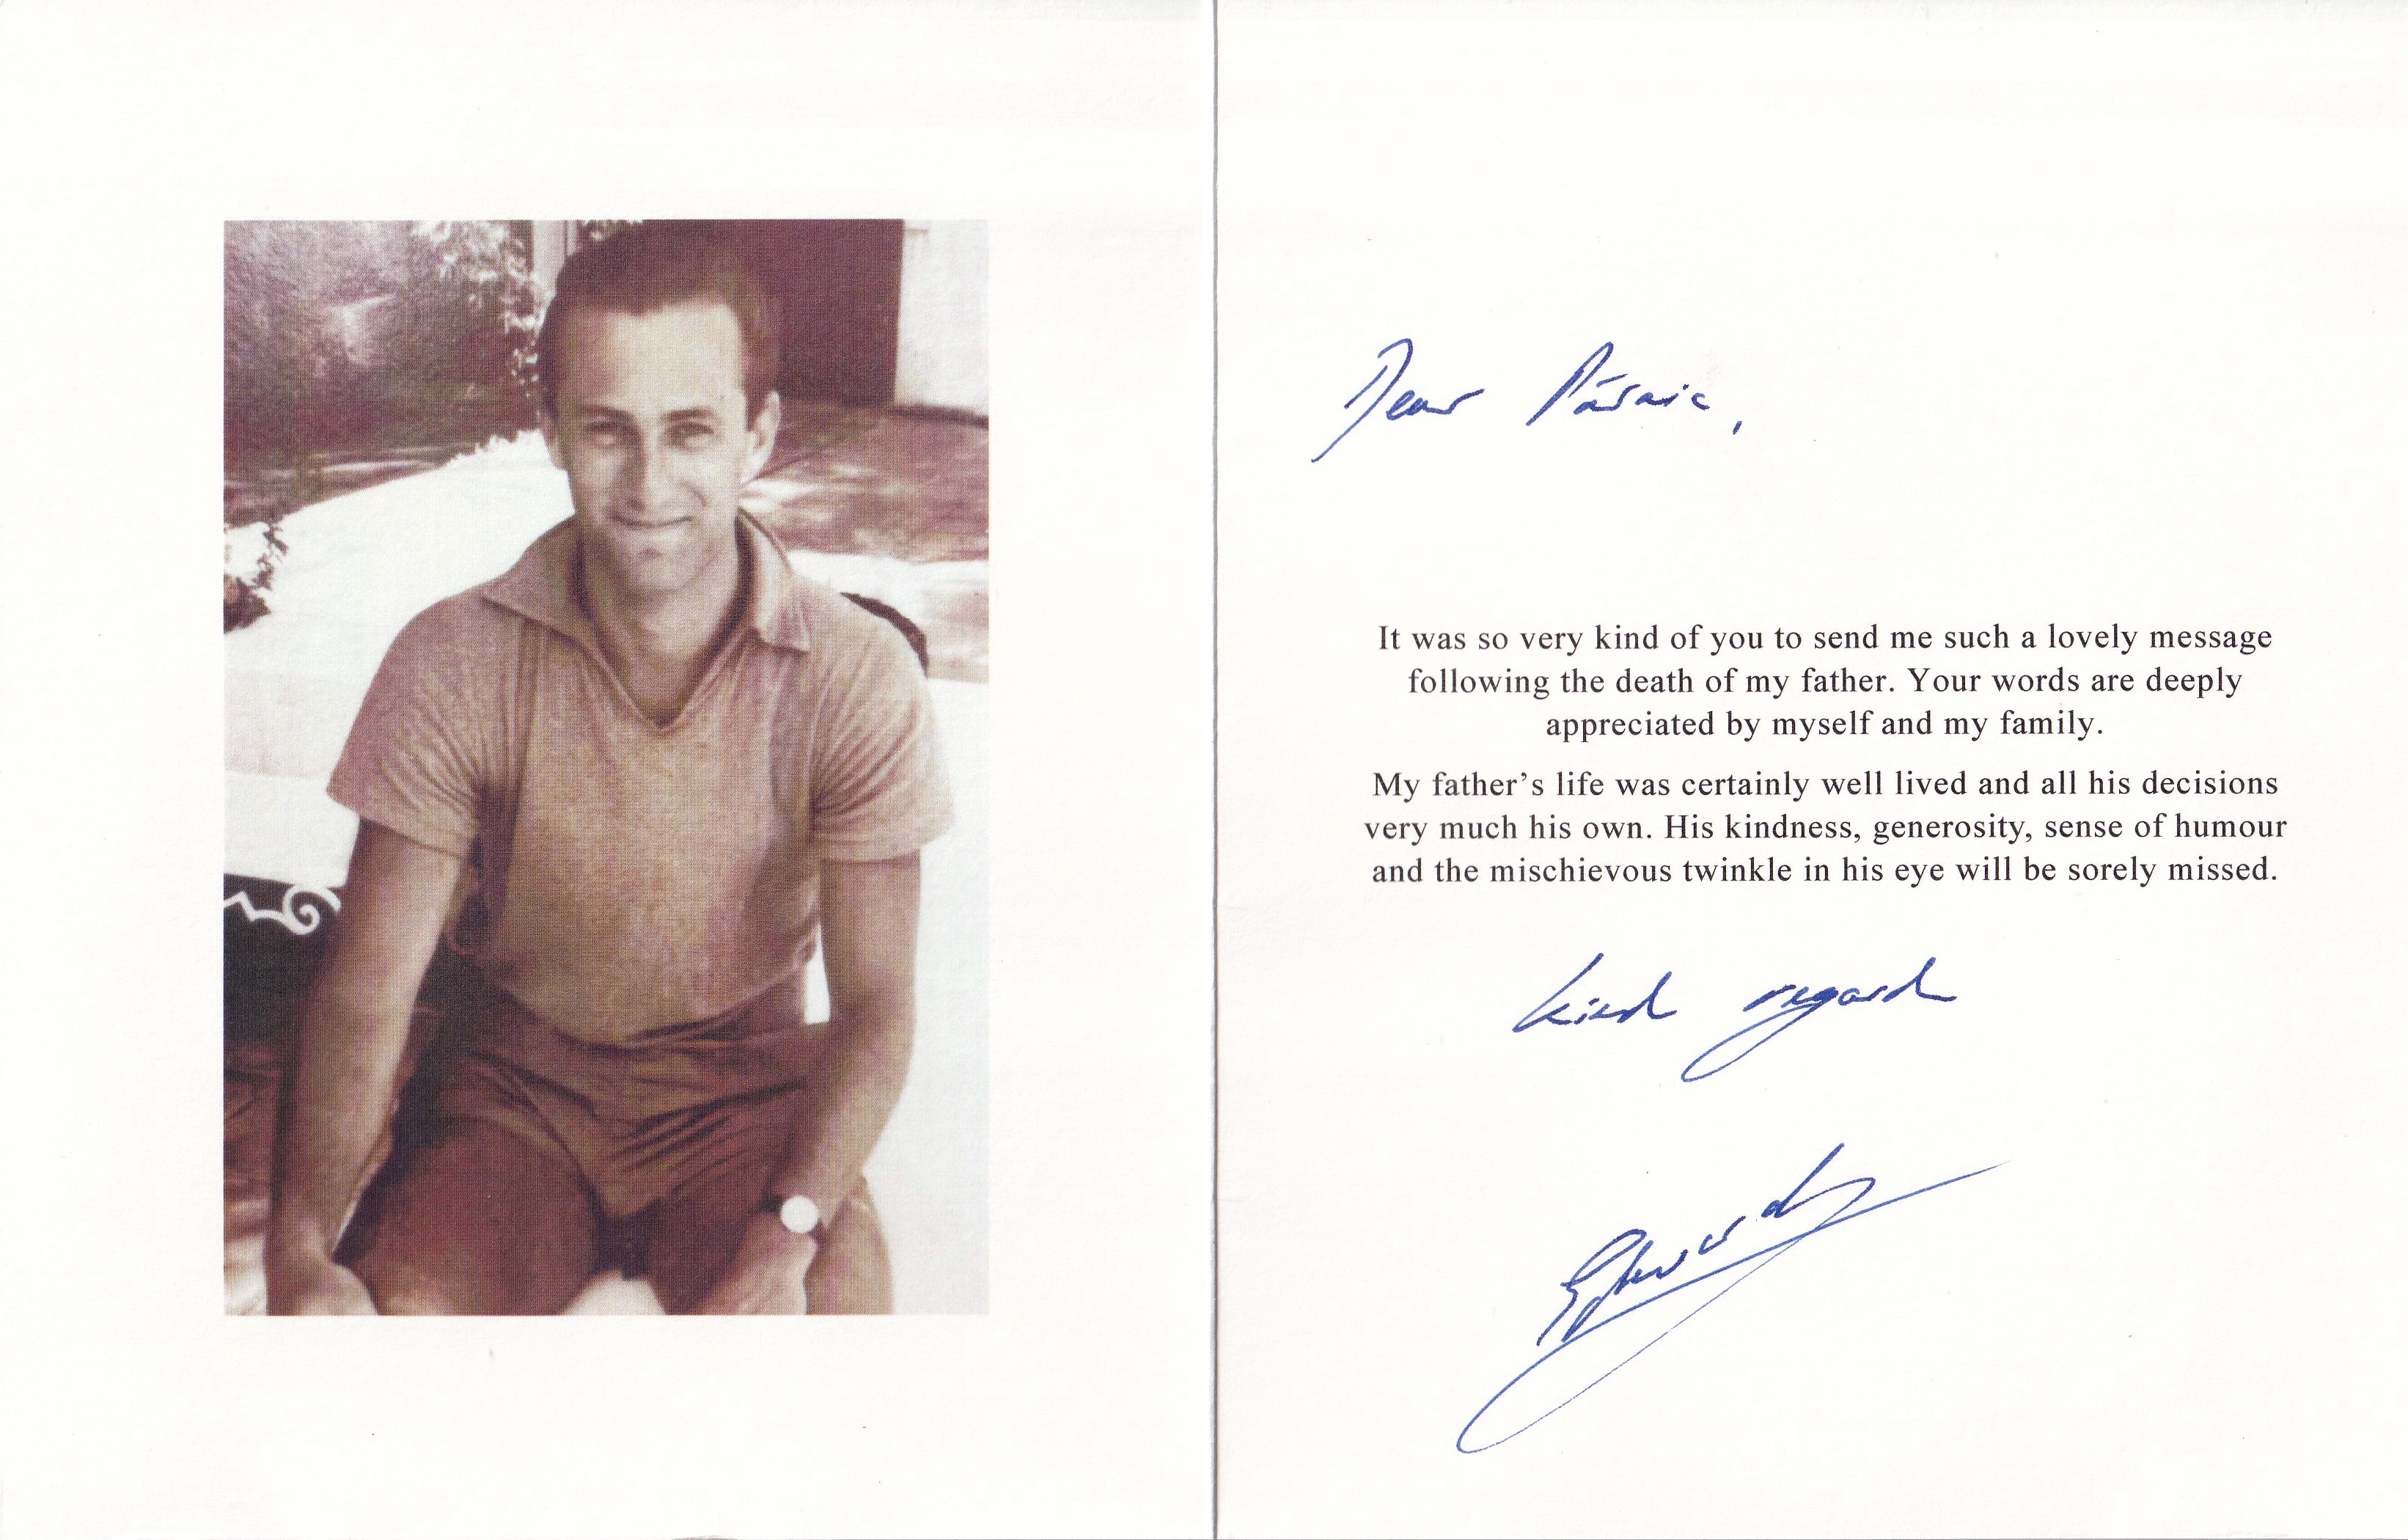 Dear Páraic,
It was so very kind of you to send me such a lovely message
following the death of my father. Your words are deeply
appreciated by myself and my family.
My father’s life was certainly well lived and all his decisions
very much his own. His kindness, generosity, sense of humour
and the mischievous twinkle in his eye will be sorely missed.
Kind regard
Edward